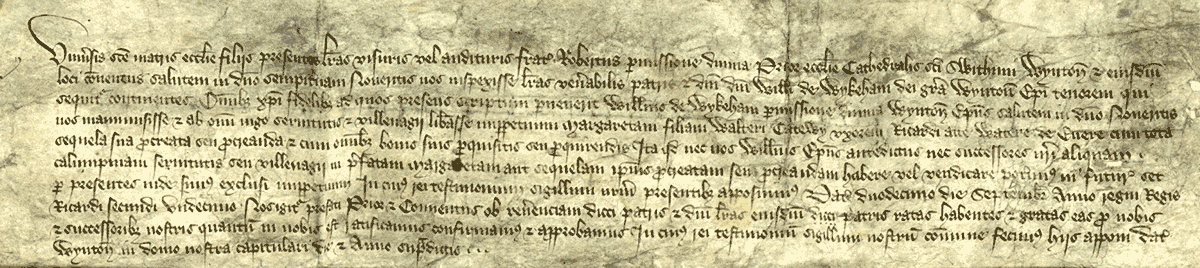 Univ'sis sc̄e matris eccl'ie filijs presentes l'ras visuris vel audituris frat' Robertus p'missione divina Prior eccl'ie Cathedralis sc̄i Swithuni Wynton' & eiusdem
loci conventus salutem in dn̄o sempit'nam Noveritis nos inspexisse l'ras ven'abilis patris & dn̄i dn̄i Will'i de Wykeham dei gr̄a Wynton' Ep̄i tenorem qui
sequit' continentes Omnib3 xp̄i fidelib3 ad quos presens scriptum pvenerit Will'mus de Wykeham p'missione divina Wynton' Ep̄us salutem in dn̄o Noveritis
nos manumisisse & ab om̄i iugo servitutis & villenagij lib'asse imppetuum Margaretam filiam Walteri Catewy uxorem Ricardi atte Watere de Evere cum tota
sequela sua p'creata seu p'creanda & cum omnib3 bonis suis p'quisitis seu p'quirendis Ita qd nec nos Will'mus Ep̄us antedictus nec successores nr̄i aliquam
calumpniam servitutis seu villenagij in p'fatam Margaretam aut sequelam ipius p'creatam seu p'creandam habere vel vendicare pot'imus in futur' set
p' presentes inde simus exclusi imppetuum In cuius rei testimonium sigillum nr̄m presentib3 apposuimus Dat' duodecimo die Septembr' Anno regni Regis
Ricardi secundi undecimo Nos igit' prefati Prior & Conventus ob rev'enciam dicti patris & dn̄i l'ras eiusdem dicti patris ratas habentes & gratas eas p' nobis
& successorib3 nostris quantum in nobis est ratificamus confirmamus & approbamus In cuius rei testimoniu' sigillum nostru' co'mune fecimus hijs apponi Dat'
Wynton' in domo nostra capitulari die & Anno sup'dictis